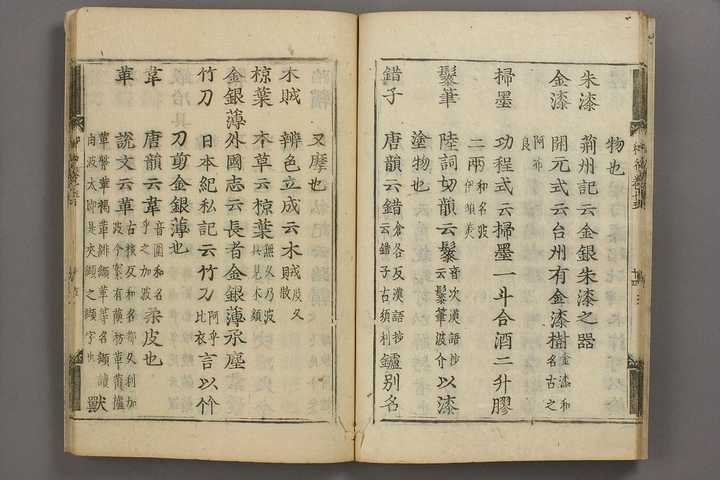 物也
朱漆 荊州記云金銀朱漆之器
金漆 開元式云台州有金漆樹 金漆和名古之
阿布良
掃墨 功程式云掃墨一斗合酒二升膠
二兩 和名波伊須美
髹筆 陸詞切韻云髹 音次漢語抄云髹筆波介 以漆
塗物也
錯子 唐韻云錯 倉各反漢語抄云錯子古須利 鑢別名
又摩也
木賊 辨色立成云木賊
椋葉 本草云椋葉
金銀薄 外國志云長者金銀薄承塵
竹刀 日本紀私記云竹刀 阿乎比衣 言以竹
刀剪金銀薄也
韋 唐韻云韋 音圍和名乎之加波 柔皮也
革 說文云革 獸